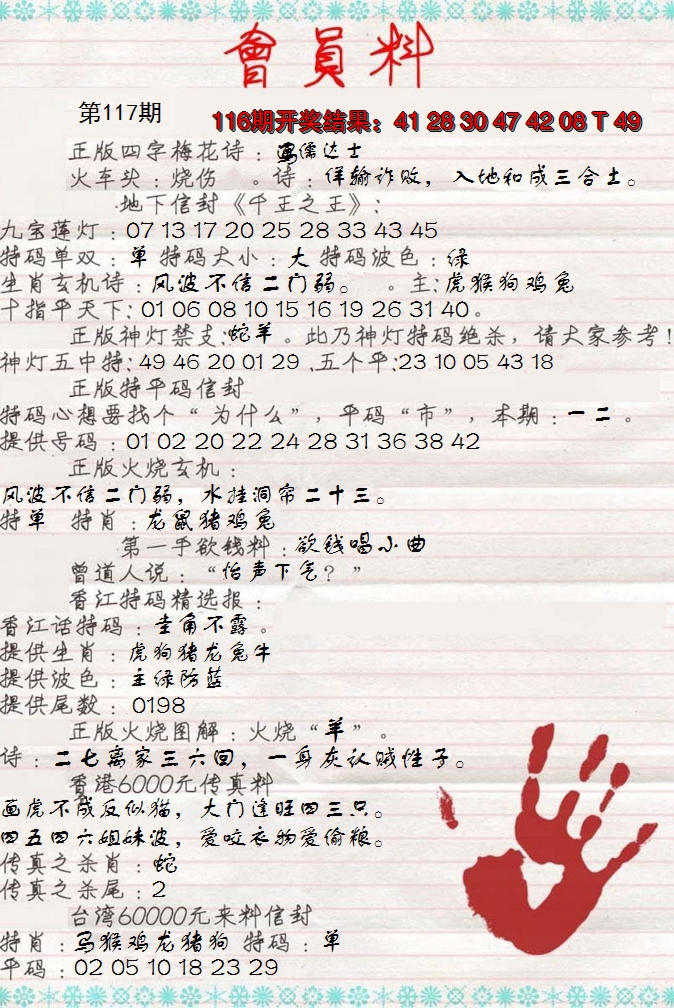 會員料
第117期
116期开奖结果：41 28 30 47 42 08 T 49
正版四字梅花诗：寓儒达士
火车头：烧伤 。诗：佯输诈败，入地和成三合土。
.地下信封《千王之王》：
九宝莲灯：07 13 17 20 25 28 33 43 45
特码单双：单 特码大小：大 特码波色：绿
生肖玄机诗：风波不信二门弱。 。主:虎猴狗鸡兔
十指平天下: 01 06 08 10 15 16 19 26 31 40。
正版神灯禁支:蛇羊。此乃神灯特码绝杀，请大家参考!
神灯五中特:49 46 20 01 29 .五个平:23 10 05 43 18
正版特平码信封
特码心想要找个“为什么”，平码“市”，本期：一二。
提供号码：01 02 20 22 24 28 31 36 38 42
正版火烧玄机：
风波不信二门弱，水挂洞帘二十三。
特单 特肖：龙鼠猪鸡兔
第一手欲钱料：欲钱唱小曲
曾道人说：“怡声下气？”
香江特码精选报：
香江话特码：圭角不露。
提供生肖：虎狗猪龙兔牛
提供波色：主绿防蓝
提供尾数：0198
正版火烧图解：火烧“羊”。
诗：二七离家三六回，一身灰认贼性子。
香港6000元传真料
画虎不成反似猫，大门逢旺四三只。
四五四六姐妹波，爱咬衣物爱偷粮。
传真之杀肖：蛇
传真之杀尾：2
台湾60000元来料信封
特肖：马猴鸡龙猪狗 特码：单
平码：02 05 10 18 23 29